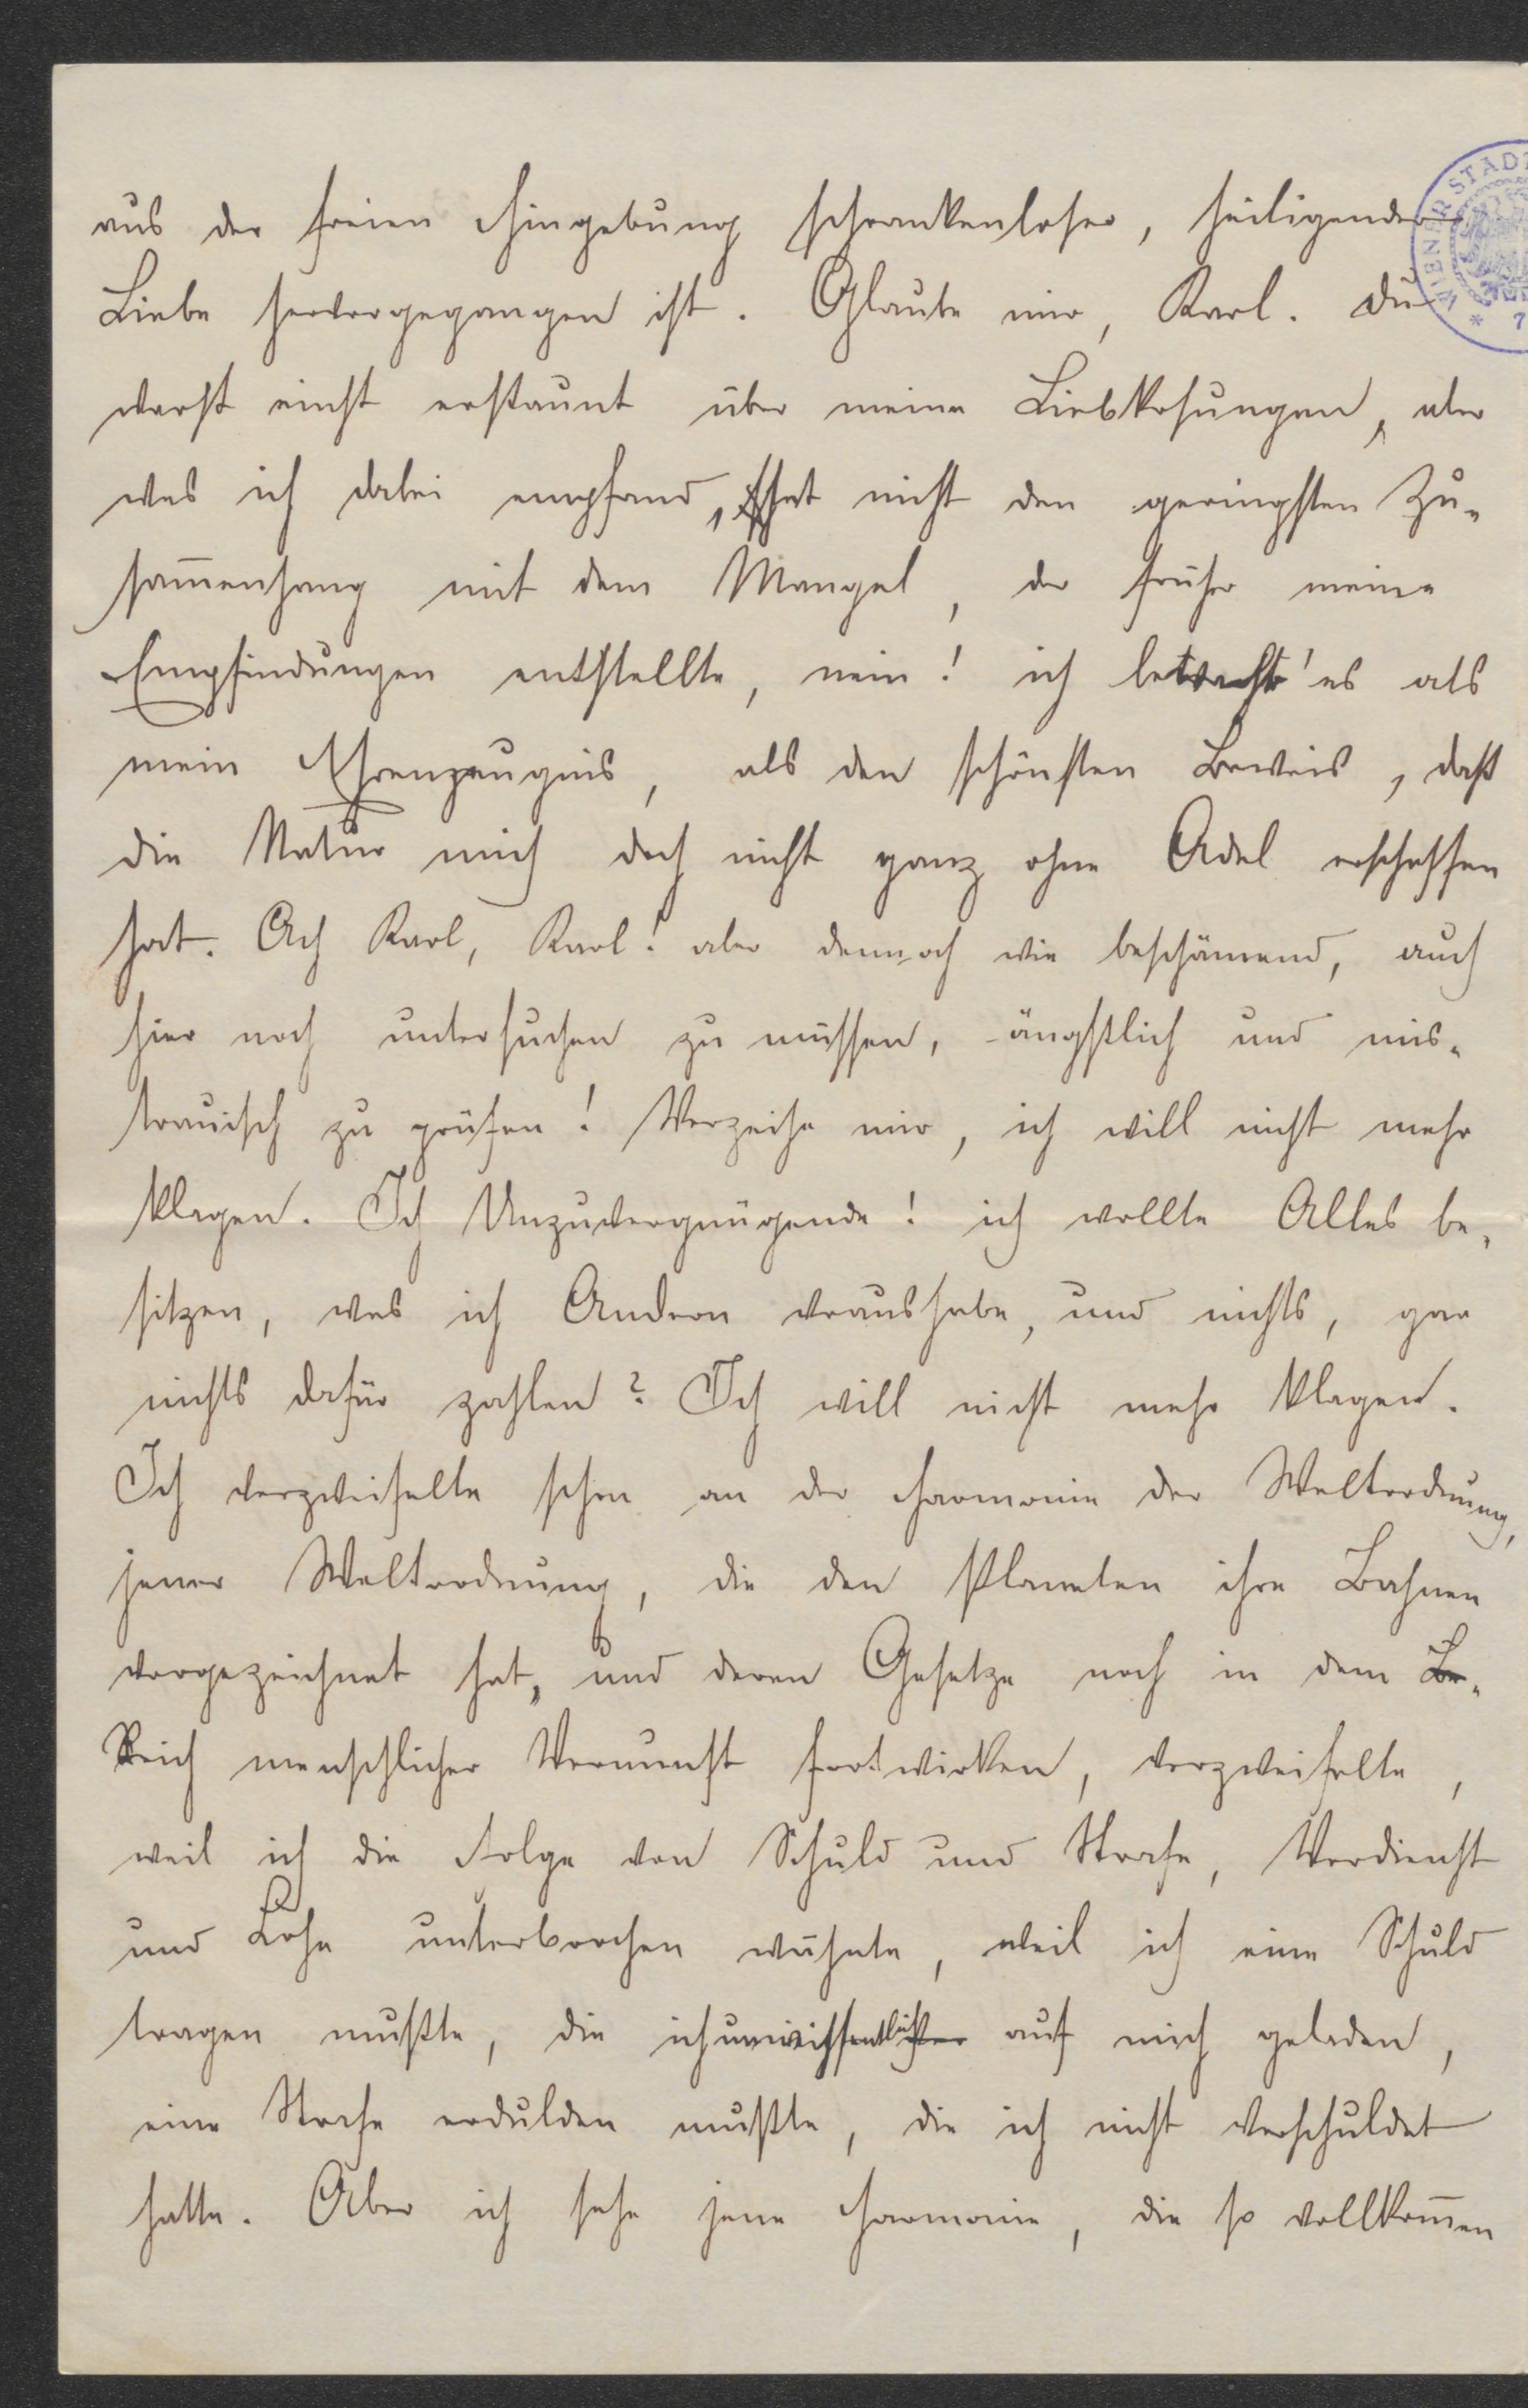 aus der freien Hingebung schrankenloser, heiligender
Liebe hervorgegangen ist. Glaube mir, Karl. Du
warst einst erstaunt über meine Liebkosungen, aber
was ich dabei empfand, hat nicht den geringsten Zu-
sam̄enhang mit dem Mangel, der früher meine
Empfindungen entstellte, nein! ich betracht' es als
mein Ehrenzeugnis, als den schönsten Beweis, daß
die Natur mich doch nicht ganz ohne Adel erschaffen
hat. Ach Karl, Karl! aber dennoch wie beschämend, auch
hier noch untersuchen zu müssen, ängstlich und mis-
trauisch zu prüfen! Verzeihe mir, ich will nicht mehr
klagen. Ich Unzuvergnügende! ich wollte Alles be-
sitzen, was ich Andern voraushabe, und nichts, gar
nichts dafür zahlen? Ich will nicht mehr klagen.
Ich verzweifelte schon an der Harmonie der Weltordnung,
jener Weltordnung, die den Planeten ihre Bahnen
vorgezeichnet hat, und deren Gesetze noch in dem Be-
Reich menschlicher Vernunft fortwirken, verzweifelte,
weil ich die Folge von Schuld und Strafe, Verdienst
und Lohn unterbrochen wähnte, weil ich eine Schuld
tragen mußte, die ich unwissentlich auf mich geladen,
eine Strafe erdulden mußte, die ich nicht verschuldet
hatte. Aber ich sehe jene Harmonie, die so vollkom̄en
WIENER STADT
* 7